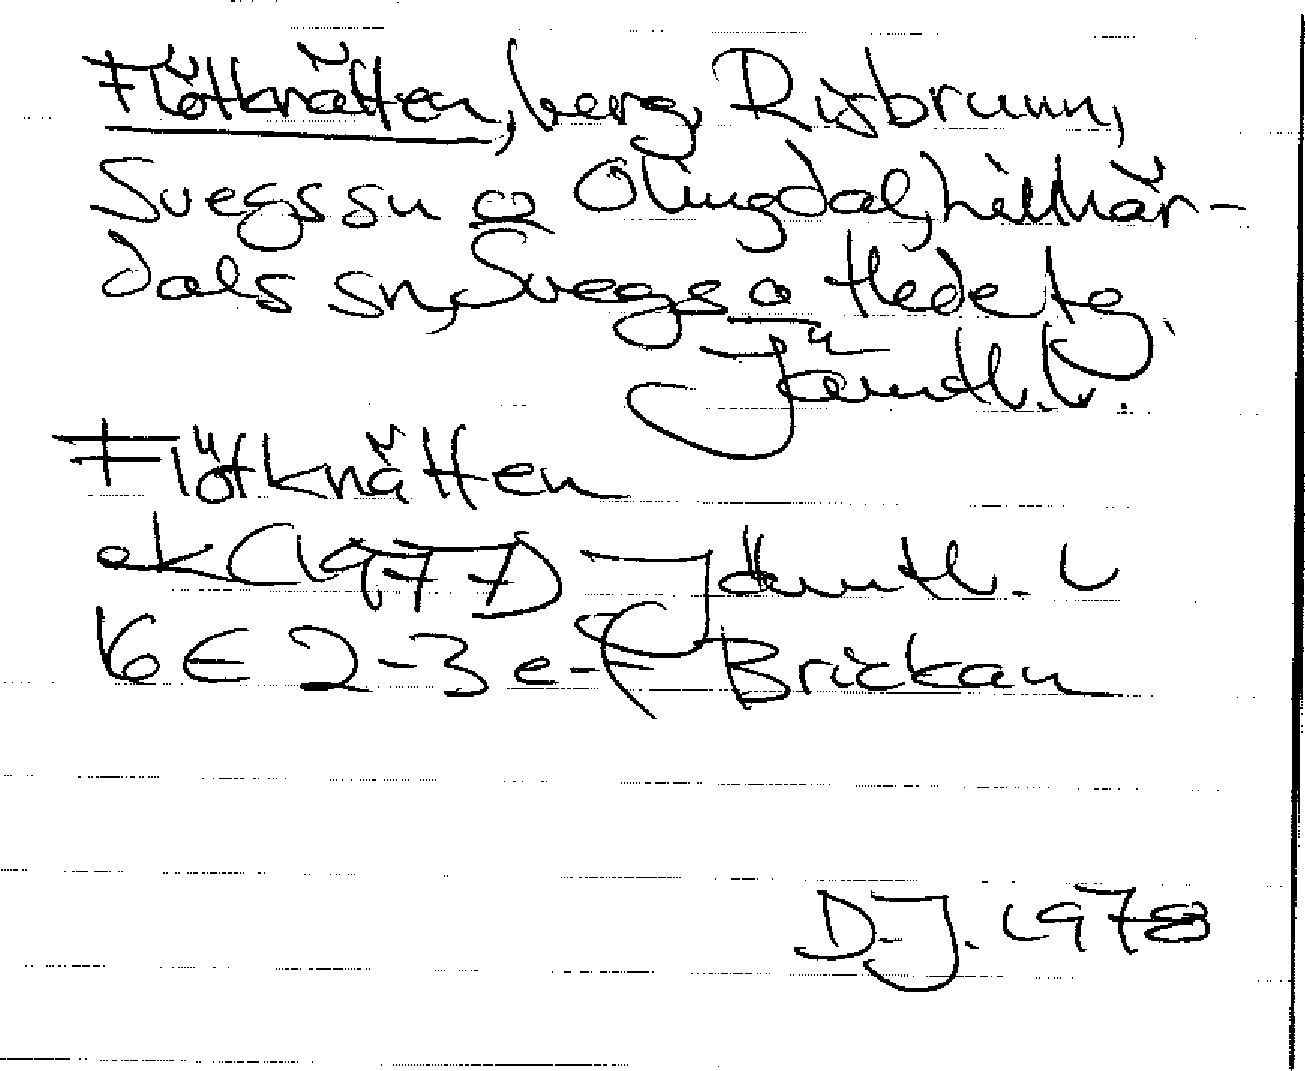 Flötknätten, berg, Risbrunn,
Svegs sn o Olingdal, Lillhär-
dals sn, Svegs o Hede tg.
Jämtl. l.
Flötknätten
ek (1977) Jämtl. l
16 E 2-3 e-f Brickan
D.J. 1978